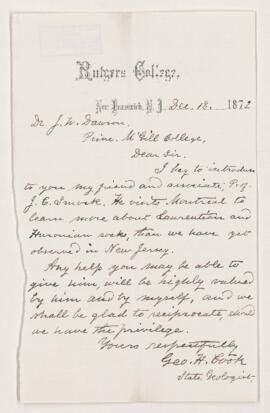 Rutgers College,
New Brunswick, N. J. Dec. 18. 1872
Dr. J. W. Dawson,
Princ. McGill College,
Dear Sir.
I beg to introduce
to you my friend and associate, Prof.
J. C. Smock. He visits Montreal to
learn more about Laurentian and
Huronian rocks, than we have yet
observed in New Jersey.
Any help you may be able to
give him, will be highly valued
by him and by myself, and we
shall be glad to reciprocate, should
we have the privilege.
Yours respectfully
Geo. H. Cook
State Geologist